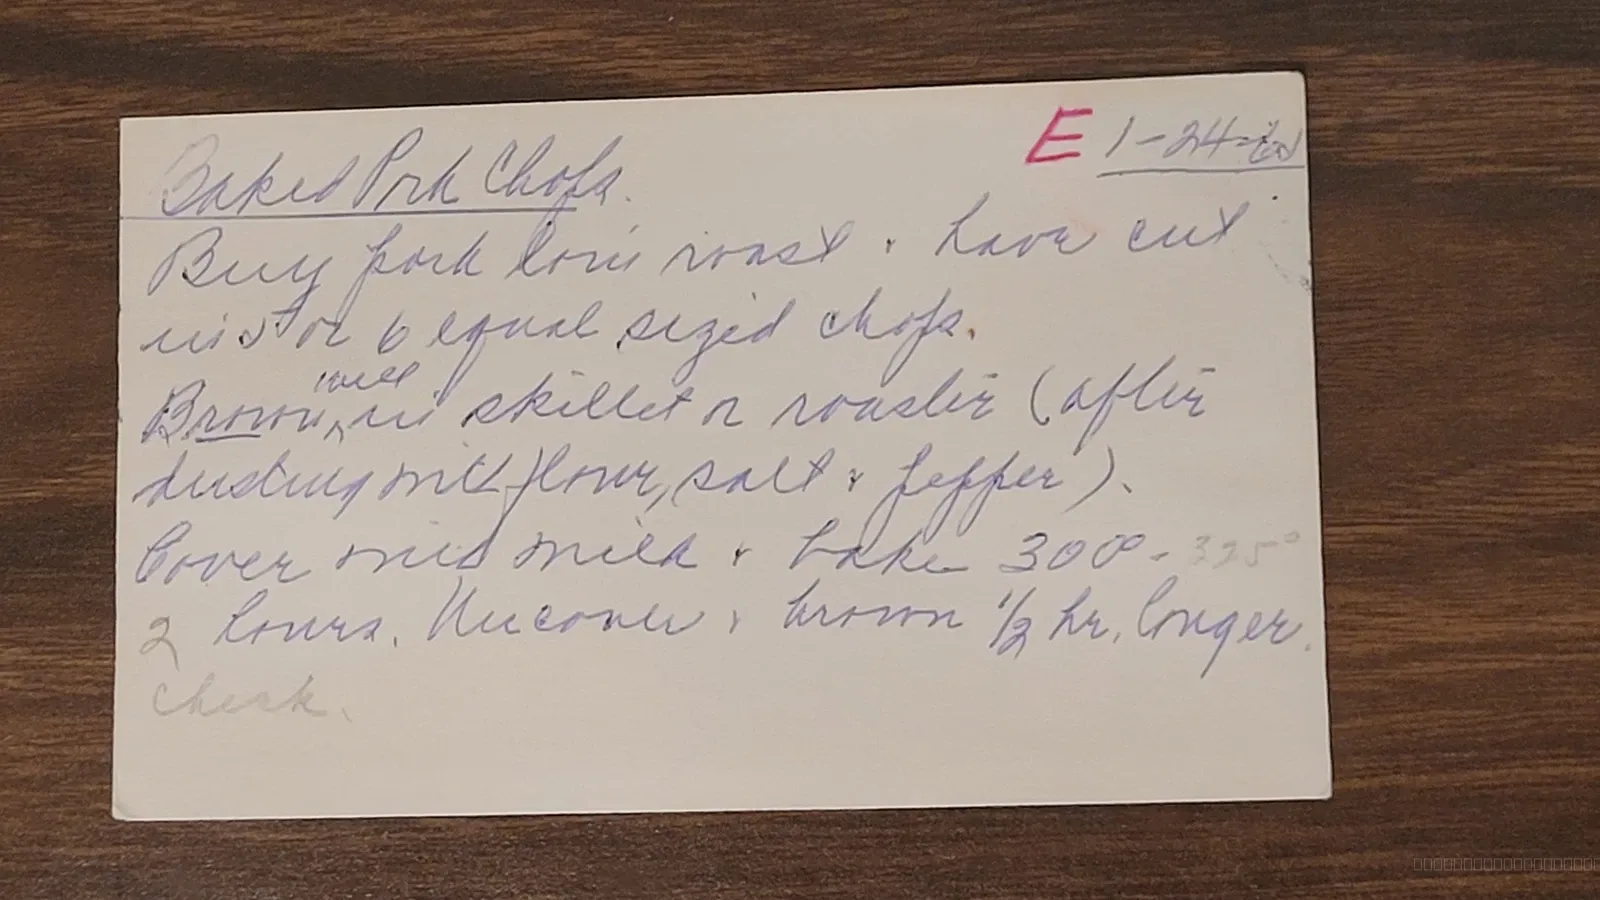 Baked Pork Chops.
E 1-24-
Buy pork loin roast & have cut
in 5 or 6 equal sized chops.
Brown well in skillet or roaster (after
dusting with flour, salt & pepper).
Cover with milk & bake 300° - 325°
2 hours. Uncover & brown 1/2 hr. longer.
Check.